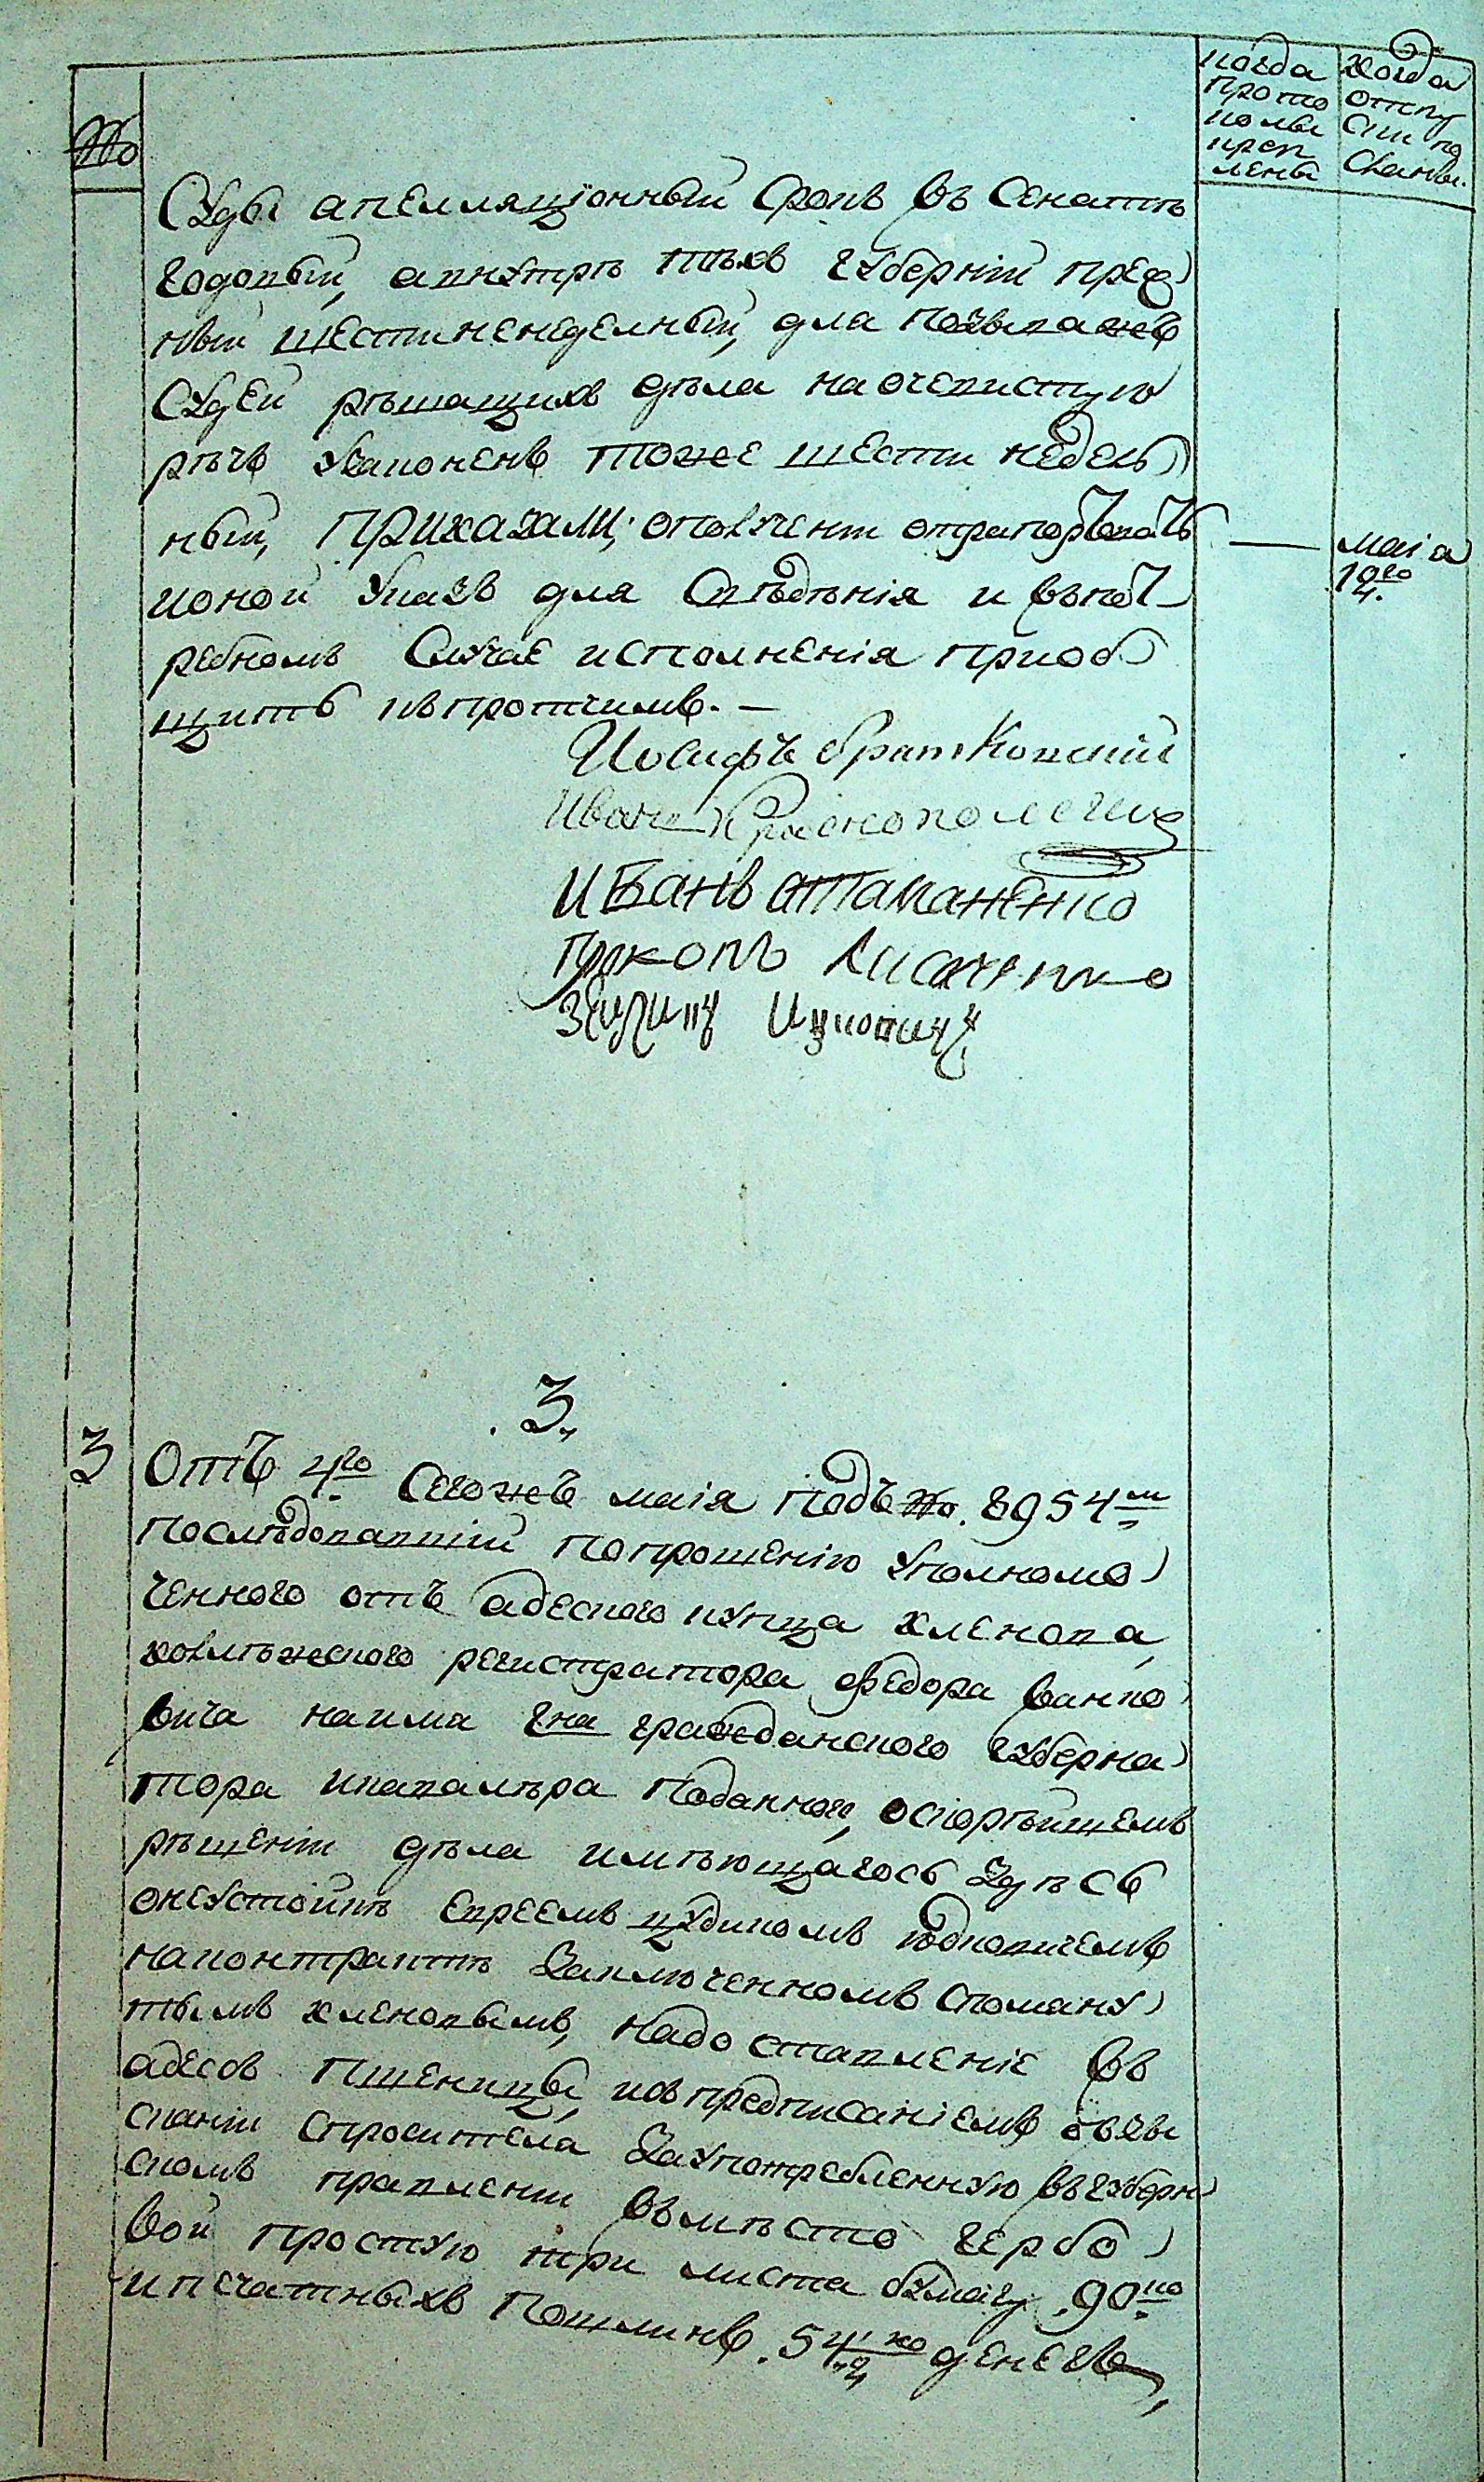 №
когда прото колы креп лены
когда отпу ски по сланы.
Суды апелляціонный срокъ въ Сенатъ
годовый, авнутрѣ тѣхъ губерній преж
ный шестинеделный, для позыва жъ
судей рѣшащихъ дѣла на очевистую
рѣчь узаконенъ тоже шести недель
ный, Приказали; ополученіи отрапортовать
ионой указъ для свѣдѣнія и въпот
ребномъ случае исполненія приоб
щить къпротчимъ. —
— маіа 19го
Иосифъ Братковскій
Иванъ Краснополскій
Иванъ Атаманенко
Прокопъ Лисаченко
3.
3 Отъ 4го Сегожъ маія подъ №. 8954м
последовавшій попрошенію уполномо
ченного отъ адеского купца хленова,
колѣжского регистратора Федора Ванко
вича наимя Гна гражданского губерна
тора икавалѣра поданного, оскорѣйшемъ
рѣшеніи дѣла имѣющагось здѣсь
онеустойкѣ евреемъ
наконтрактѣ заключенномъ споману
тымъ хленовымъ, надоставленіе въ
адесъ пшеницы, исъпредписаніемъ овзы
сканіи спросителя заупотребленную въгуберн
скомъ правленіи въмѣсто гербо
вой простую три листа бумагу .90ко
ипечатныхъ пошлинъ .54 ко денегъ,